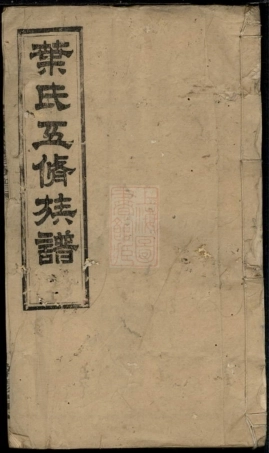 葉氏五脩族譜